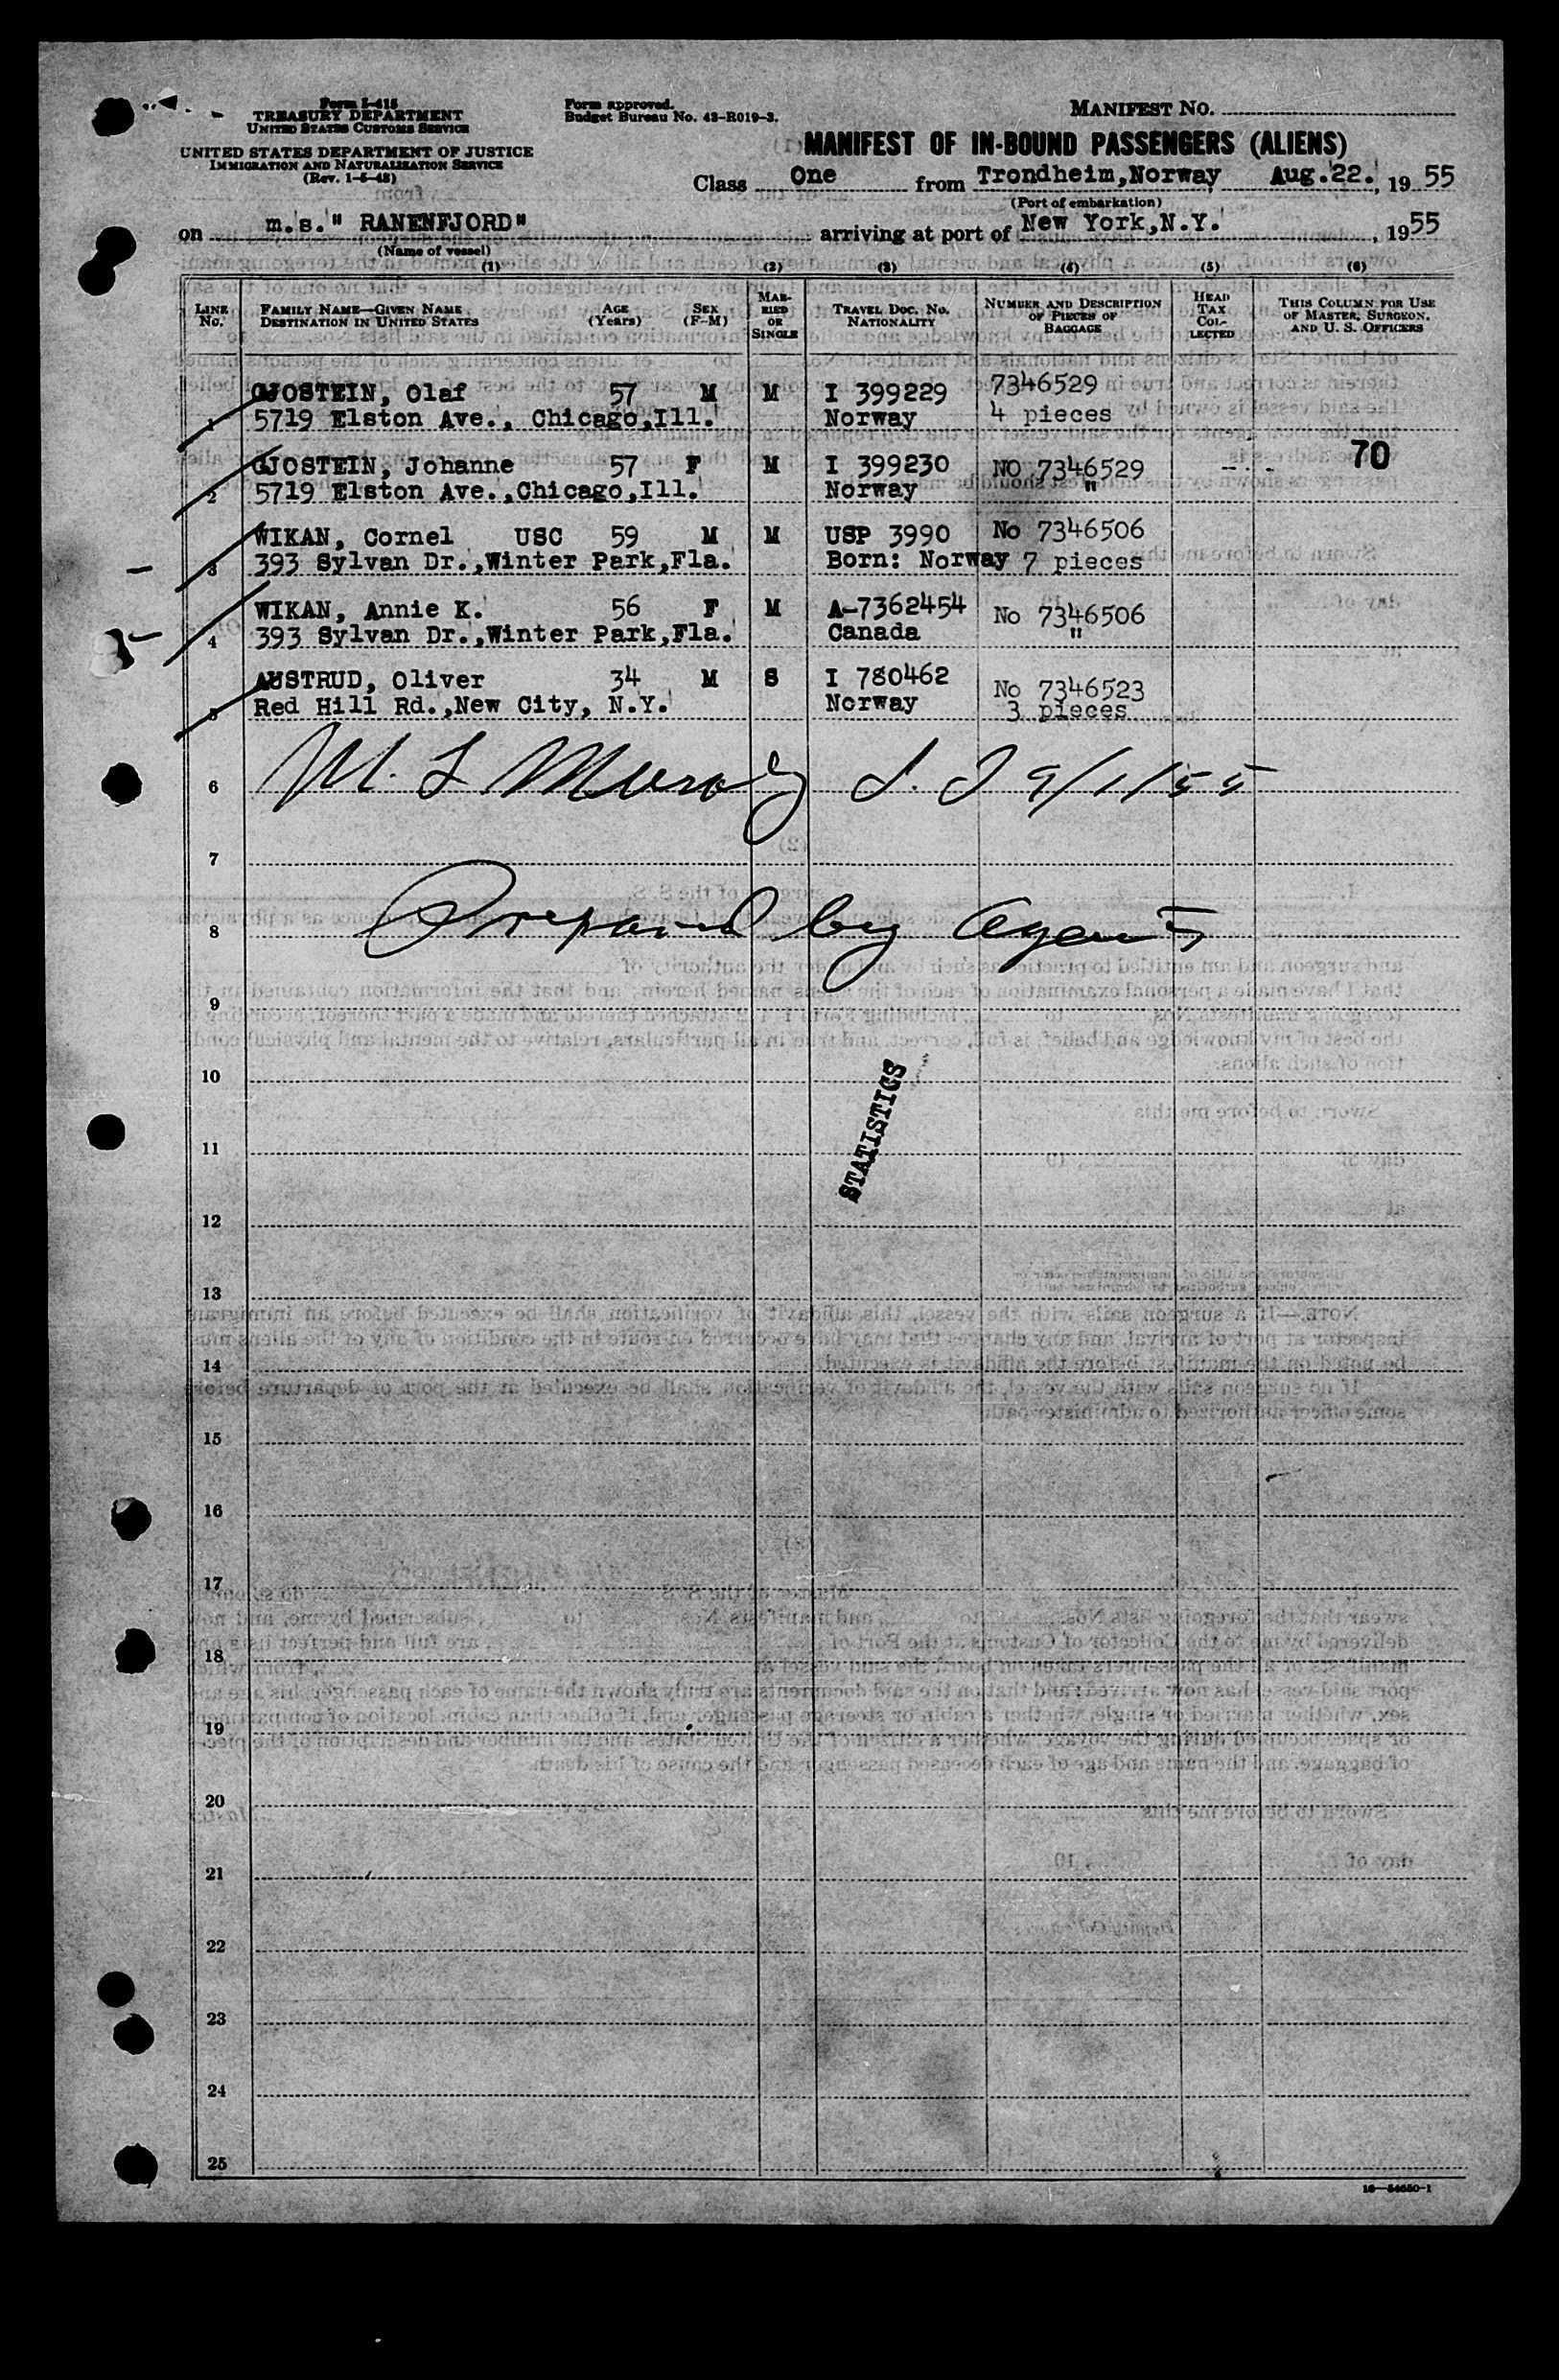 Form I-415
TREASURY DEPARTMENT
UNITED STATES CUSTOMS SERVICE
UNITED STATES DEPARTMENT OF JUSTICE
IMMIGRATION AND NATURALIZATION SERVICE
(Rev. 1-5-48)
Form approved.
Budget Bureau No. 43-R019-3.
MANIFEST NO.
MANIFEST OF IN-BOUND PASSENGERS (ALIENS)
Class One from Trondheim,Norway Aug.22., 1955
(Port of embarkation)
on m.s." RANENFJORD" arriving at port of New York,N.Y. , 1955
(Name of vessel)
(1) (2) (3) (4) (5) (6)
LINE No. FAMILY NAME—GIVEN NAME DESTINATION IN UNITED STATES AGE (Years) SEX (F-M) MARRIED OR SINGLE TRAVEL DOC. NO. NATIONALITY NUMBER AND DESCRIPTION OF PIECES OF BAGGAGE HEAD TAX COLLECTED THIS COLUMN FOR USE OF MASTER, SURGEON, AND U. S. OFFICERS
GJOSTEIN, Olaf 57 M M I 399229 7346529
1 5719 Elston Ave., Chicago,Ill. Norway 4 pieces
70
GJOSTEIN, Johanne 57 F M I 399230 NO 7346529
2 5719 Elston Ave.,Chicago,Ill. Norway "
WIKAN, Cornel USC 59 M M USP 3990 No 7346506
3 393 Sylvan Dr.,Winter Park,Fla. Born: Norway 7 pieces
WIKAN, Annie K. 56 F M A-7362454 No 7346506
4 393 Sylvan Dr.,Winter Park,Fla. Canada "
AUSTRUD, Oliver 34 M S I 780462 No 7346523
5 Red Hill Rd.,New City, N.Y. Norway 3 pieces
6 M. L 9/1/55
7
8 Prepared by Agents
9
10
STATISTICS
11
12
13
14
15
16
17
18
19
20
21
22
23
24
25